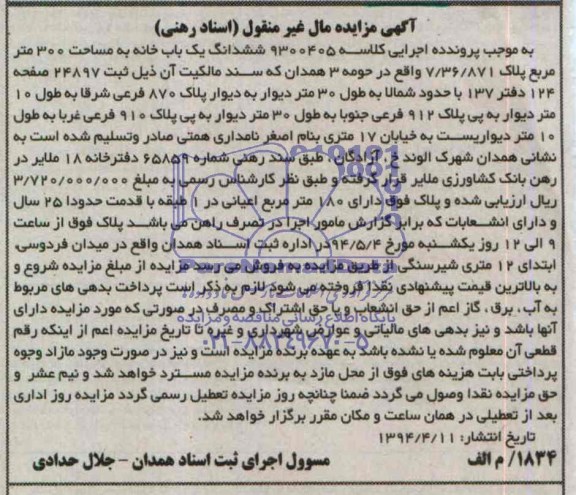 آگهی مزایده مال غیر منقول (اسناد رهنی)
به موجب پرونده اجرایی کلاسه ۹۳۰۰۴۰۵ ششدانگ یک باب خانه به مساحت ۳۰۰ متر
مربع پلاک ۷/۳۶/۸۷۱ واقع در حومه ۳ همدان که سند مالکیت آن ذیل ثبت ۲۴۸۹۷ صفحه
۱۲۴ دفتر ۱۳۷ با حدود شمالا به طول ۳۰ متر دیوار به دیوار پلاک ۸۷۰ فرعی شرقا به طول ۱۰
متر دیوار به پی پلاک ۹۱۲ فرعی جنوبا به طول ۳۰ متر دیوار به پی پلاک ۹۱۰ فرعی غربا به طول
۱۰ متر دیواریست به خیابان ۱۷ متری بنام اصغر نامداری همتی صادر وتسلیم شده است به
نشانی همدان شهرک الوند خ آزادگان، طبق سند رهنی شماره ۶۵۸۵۹ دفترخانه ۱۸ ملایر در
رهن بانک کشاورزی ملایر قرار گرفته و طبق نظر کارشناس رسمی به مبلغ ۳/۷۲۰/۰۰۰/۰۰۰
ریال ارزیابی شده و پلاک فوق دارای ۱۸۰ متر مربع اعیانی در ۱ طبقه با قدمت حدودا ۲۵ سال
و دارای انشعابات که برابر گزارش مامور اجرا در تصرف راهن می باشد پلاک فوق از ساعت
۹ الی ۱۲ روز یکشنبه مورخ ۹۴/۵/۴ در اداره ثبت اسناد همدان واقع در میدان فردوسی،
ابتدای ۱۲ متری شیرسنگی از طریق مزایده به فروش می رسد مزایده از مبلغ مزایده شروع و
به بالاترین قیمت پیشنهادی نقدا فروخته می شود لازم به ذکر است پرداخت بدهی های مربوط
به آب، برق، گاز اعم از حق انشعاب و یا حق اشتراک و مصرف در صورتی که مورد مزایده دارای
آنها باشد و نیز بدهی های مالیاتی و عوارض شهرداری و غیره تا تاریخ مزایده اعم از اینکه رقم
قطعی آن معلوم شده یا نشده باشد به عهده برنده مزایده است و نیز در صورت وجود مازاد وجوه
پرداختی بابت هزینه های فوق از محل مازد به برنده مزایده مسترد خواهد شد و نیم عشر و
حق مزایده نقدا وصول می گردد ضمنا چنانچه روز مزایده تعطیل رسمی گردد مزایده روز اداری
بعد از تعطیلی در همان ساعت و مکان مقرر برگزار خواهد شد.
تاریخ انتشار: ۱۳۹۴/۴/۱۱
۱۸۳۴/ م الف مسوول اجرای ثبت اسناد همدان - جلال حدادی
پایگاه اطلاع رسانی مناقصه و مزایده
۰۲۱-۸۸۳۴۹۶۷۰-۵